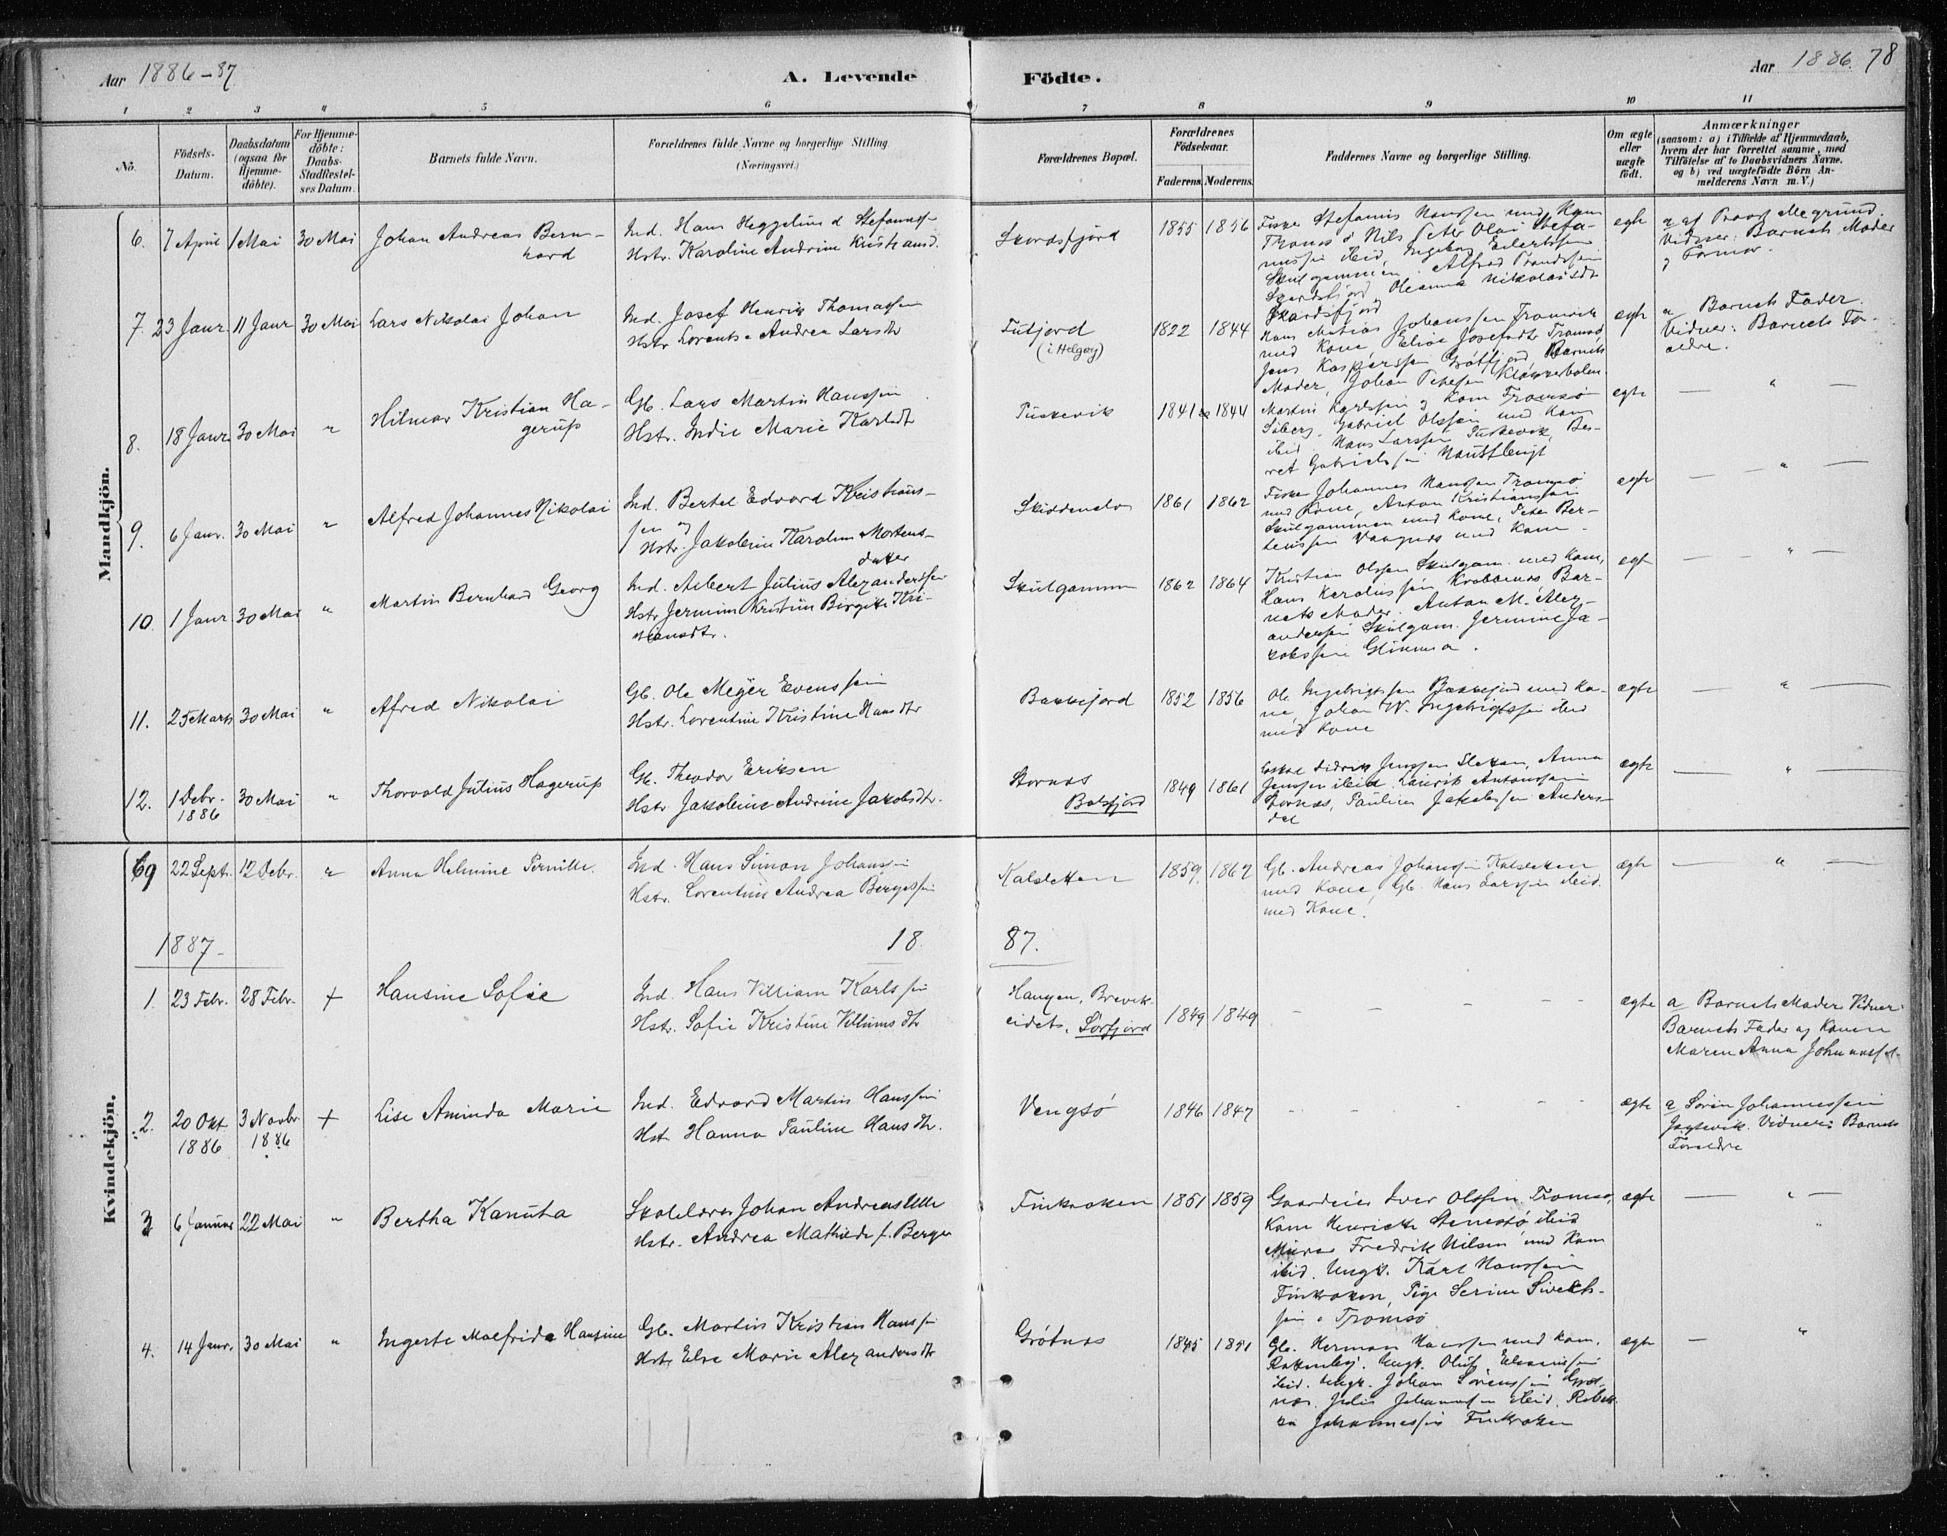 Aar 1886-87
A. Levende Födte.
Aar 1886. 78
1 2 3 4 5 6 7 8 9 10 11
No.
Födsels-Datum.
Daabsdatum (ogsaa för Hjemme-döbte).
For Hjemme-döbte: Daabs-Stadfestel-ses Datum.
Barnets fulde Navn.
Forældrenes fulde Navne og borgerlige Stilling (Næringsvei.)
Forældrenes Bopæl.
Forældrenes Födselsaar.
Faderens. Moderens.
Faddernes Navne og borgerlige Stilling.
Om ægte eller uægte födt.
Anmærkninger
(saasom: a) i Tilfælde af Hjemmedaab,
hvem der har forrettet samme, med
Tilföielse af to Daabsvidners Navne.
og b) ved uægtefödte Börn An-
melderens Navn m. V.)
Mandkjön.
6. 7 April 1 Mai 30 Mai Johan Andreas Bern-
hard
Ind. Hans Heggelund Stefanus-
Hstr. Karoline Andrine Kristiansd.
Skardsfjord 1855 1856
Fisker Stefanus Hanssen med Kone
Tromsø, Nils Peter Olai Stefa-
nussen ibid, Ingeborg Eilertssen
Skulgammen. Alfred
Skardsfjord Oleanna Nikolaisdtr
Skardsfjord
egte
a af Provst Megrund.
Vidner: Barnets Moder
og Farmor.
7. 23 Janr 11 Janr 30 Mai Lars Nikolai Johan
Ind. Josef Henrik Thomassen
Hstr Lorentse Andrea Larsdtr
Tufjord
(i Helgøy)
1822 1844
Hans Matias Johanssen Tromvik
med Kone Elise Josefsdtr Tromsø
Jens Kasperssen Grøtfjord, Barnets
Moder, Johan Petersen
ægte
a Barnets Fader.
Vidner: Barnets For-
ældre.
8. 18 Janr 30 Mai " Hilmar Kristian Ha-
gerup
Gb. Lars Martin Hanssen
Hstr. Indie Marie Karlsdtr
Tuskevik 1841 1844
Martin med Kone Tromsø
Gabriel Olssen med Kone
ibid, Hans Larssen Tuskevik, Be-
ret Gabrielssen
egte — " —
9. 6 Janr. 30 Mai " Alfred Johannes Nikolai
Ind. Bertel Edvard Kristians-
sen og
Hstr. Jakobine Karoline Mortens-
datter
Skiddenelv 1861 1862
Fisker Johannes Hanssen Tromsø
med Kone, Anton Kristianssen
Skulgammen med Kone, Peter Ber-
tenssen Vaagnes med Kone
egte — " —
10. 1 Janr 30 Mai " Martin Bernhard Georg
Ind. Albert Julius Alexanderssen
Hstr Jermine Kristine Birgitte Kri-
stiansdtr.
Skulgammen 1862 1864
Kristian Olssen Skulgam. med Kone,
Hans Karolussen Krabbenes Bar-
nets Moder. Anton M. Alex-
anderssen Skulgam. Jermine Ja-
kobssen Glimma.
egte — " —
11. 25 Marts 30 Mai " Afred Nikolai
Gb. Ole Mejer Evenssen
Hstr. Lorentine Kristine Hansdtr
Bakkejord 1852 1856
Ole Ingebrigtssen Bakkejord med Ko-
ne, Johan W. Ingebrigtssen ibid
med Kone
ægte — " —
12. 1 Debr. 1886 30 Mai " Thorvald Julius Hagerup
Gb. Theodor Eriksen
Hstr Jakobine Andrine Jakobsdtr.
Stornes
Balsfjord
1849 1861
Didrik Jenssen Sletten, Anna
Jenssen ibid. Antonssen
Stornes, Pauline Jakobssen Anders-
dal
ægte — " —
Kvindekjön.
69 22 Sept. 12 Debr. " Anna Helmine Pernille.
Ind. Hans Simon Johanssen
Hstr. Lorentine Andrea Bergessen
Kalsletten 1859. 1862
Gb. Andreas Johanssen Kalsletten
med Kone, Gb. Hans Larssen ibid.
med Kone.
ægte — " —
1887. 18 87.
1. 23 Febr. 28 Febr. + Hansine Sofie
Ind. Hans Villiam Karlssen
Hstr. Sofie Kristine Villumsdtr
Haugen, Breivik-
eidets, Sørfjord
1849 1849
ægte
a Barnets Moder Vidner:
Barnets Fader og Konen
Maren Anna
2. 20 Okt 1886 3 Novbr 1886 + Lise Aminda Marie
Ind. Edvard Martin Hanssen
Hstr Hanna Pauline Hansdtr.
Vengsø 1846 1847
ægte
a Søren Johannessen
Jægtevik. Vidner: Barnets
Forældre
3 6 Januar 22 Mai " Bertha Kanuta
Skolelærer Johan Andreas
Hstr. Andrea Mathilde f. Berger
Finkroken 1851 1859
Gaardeier Iver Olssen Tromsø,
Kone Henrikke Stensø ibid
Murer Fredrik Nilsen med Kone
ibid. Ungk. Karl Hanssen
Finkroken, Pige Serine Siverts-
sen i Tromsø
ægte — " —
4. 14 Janr. 30 Mai " Ingerte Malfrida Hansine
Gb. Martin Kristian Hanssen
Hstr Else Marie Alexandersdtr
Grøtnes 1845 1851
Gb. Herman Hanssen med Kone,
Ungk. Oluf
ibid. Ungk. Johan Sørenssen Grøt-
nes. Julie ibid. Rebek-
ka Johannessen Finkroken
ægte — "